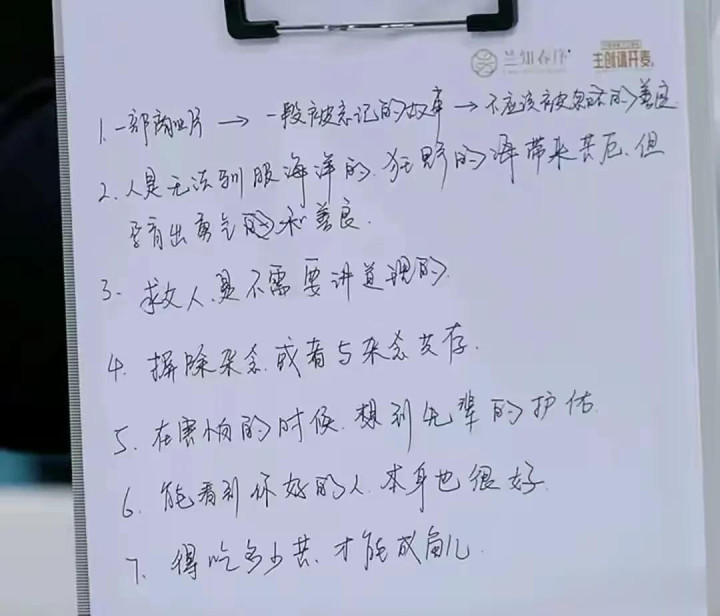 兰知春序
主创请开麦
1. 一部商业片 → 一段被忘记的故事 → 不应该被忽略的善良
2. 人是无法驯服海洋的. 狂野的海带来苦厄. 但
孕育出勇气的和善良.
3. 救人.是不需要讲道理的.
4. 摒除杂念.或者与杂念共存.
5. 在害怕的时候.想到先辈的护佑.
6. 能看到你好的人.本身也很好.
7. 得吃多少苦.才能成角儿.